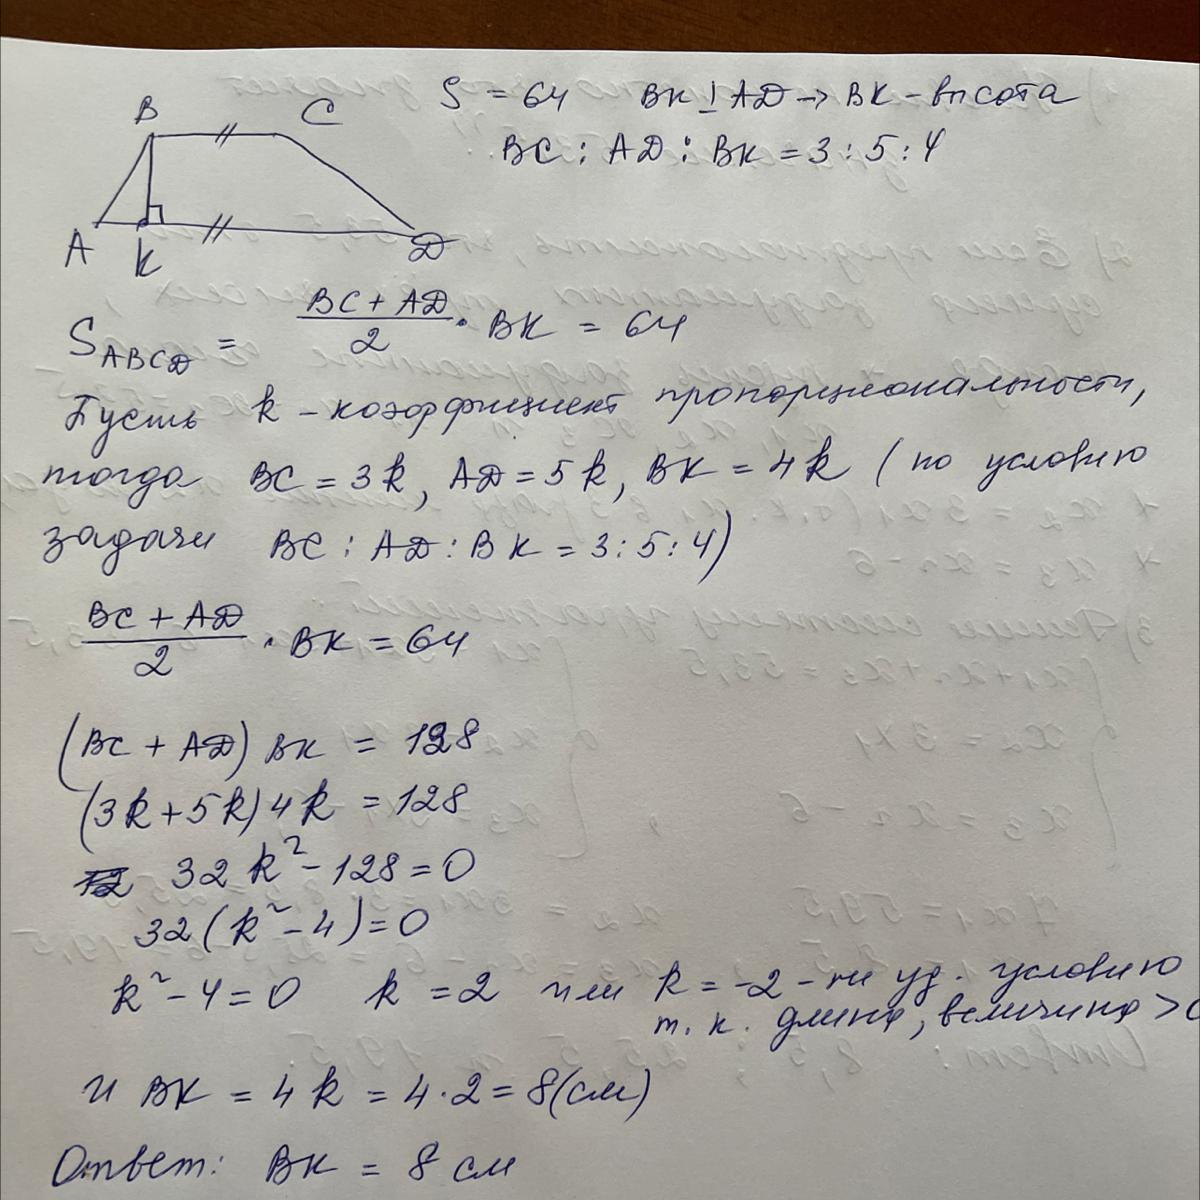 B C S = 64 BK ⊥ AD → BK - высота
BC : AD : BK = 3 : 5 : 4
A K D
S ABCD = (BC + AD)/2 · BK = 64
Пусть k - коэффициент пропорциональности,
тогда BC = 3k, AD = 5k, BK = 4k (по условию
задачи BC : AD : BK = 3 : 5 : 4)
(BC + AD)/2 · BK = 64
(BC + AD) BK = 128
(3k + 5k) 4k = 128
32 k² - 128 = 0
32 (k² - 4) = 0
k² - 4 = 0 k = 2 или k = -2 - не уд. условию
т. к. длина, величина > 0
и BK = 4k = 4 · 2 = 8 (см)
Ответ: BK = 8 см